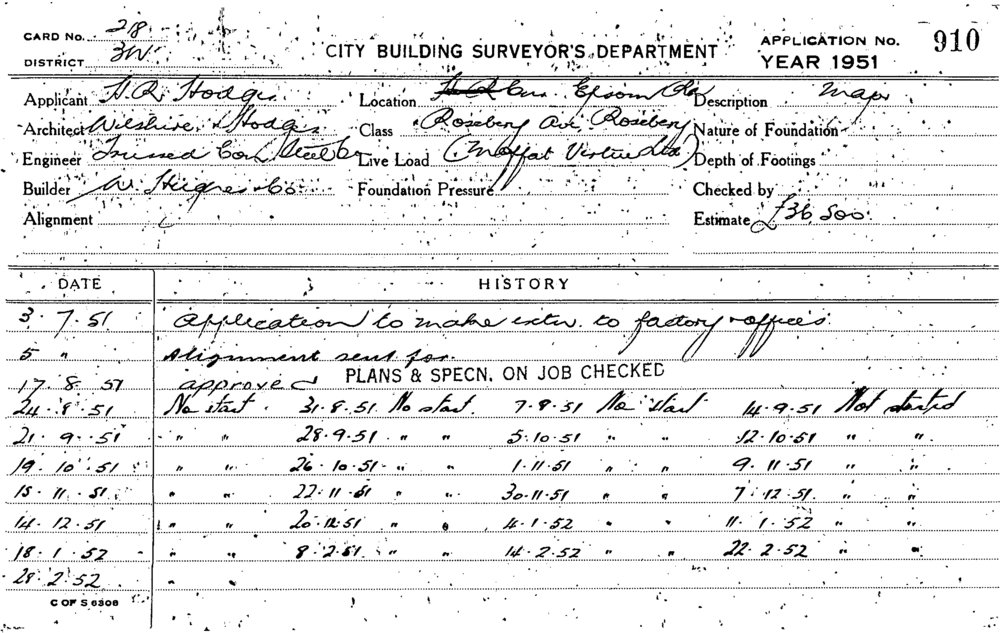 CARD No. 28
DISTRICT 3W
CITY BUILDING SURVEYOR'S DEPARTMENT
APPLICATION No. 910
YEAR 1951
Applicant H. R. Hodges Location Cnr. Epsom Rd Description
Architect Wilshire & Hodges Class Rosebery Ave, Rosebery Nature of Foundation
Engineer Trussed Conc Steel Co Live Load (Moffat Virtue Ltd) Depth of Footings
Builder W. Hughes & Co Foundation Pressure Checked by
Alignment Estimate £36 500
DATE HISTORY
3. 7. 51 Application to make extn. to factory & offices
5 " Alignment sent for.
17. 8. 51 approved PLANS & SPECN. ON JOB CHECKED
24. 8. 51 No start. 31. 8. 51. No start. 7. 9. 51 No start 14. 9. 51 Not started
21. 9. 51 " " 28. 9. 51 " " 5. 10. 51 " " 12. 10. 51 " "
19. 10. 51 " " 26. 10. 51 " " 1. 11. 51 " " 9. 11. 51 " "
15. 11. 51. " " 22. 11. 51 " " 30. 11. 51 " " 7. 12. 51. " "
14. 12. 51 " " 20. 12. 51 " " 4. 1. 52 " " 11. 1. 52 " "
18. 1. 52 " " 8. 2. 51 " " 14. 2. 52 " " 22. 2. 52 " "
28. 2. 52 " "
C OF S 6306